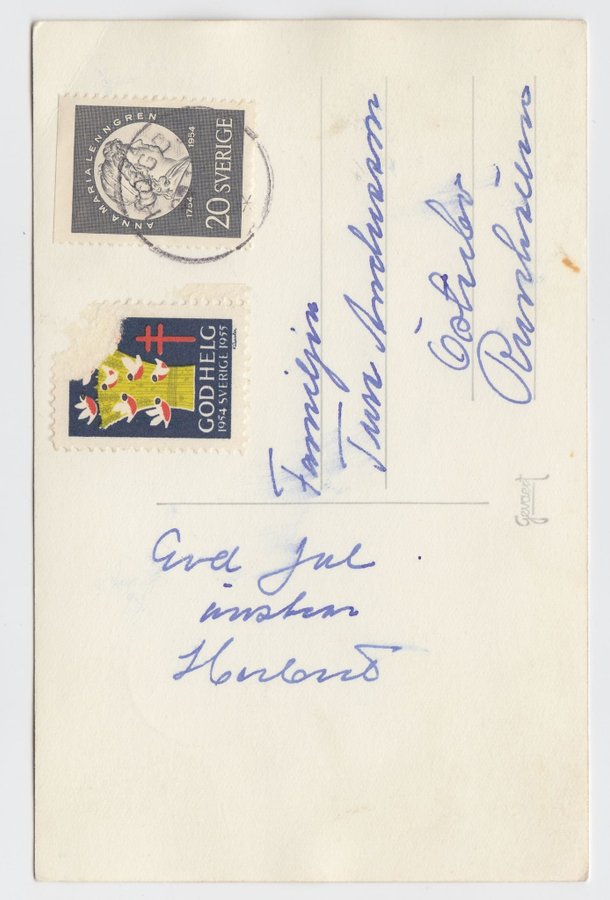 ANNA MARIA LENNGREN
1754
1954
20 SVERIGE
GOD HELG
1954 SVERIGE 1955
Familjen
Ture Andersson
Gevaert
God Jul
önskar
Herbert